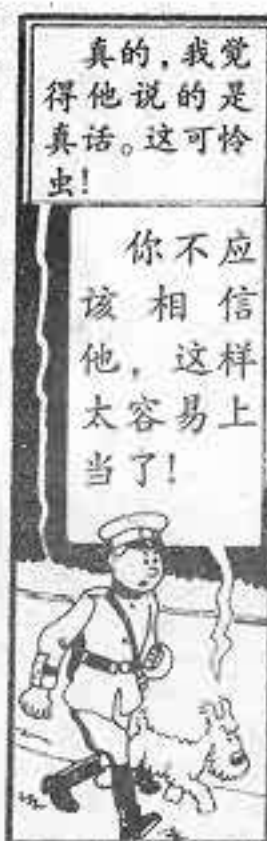 真的，我觉
得他说的是
真话。这可怜
虫！
你不应
该相信
他，这样
太容易上
当了！